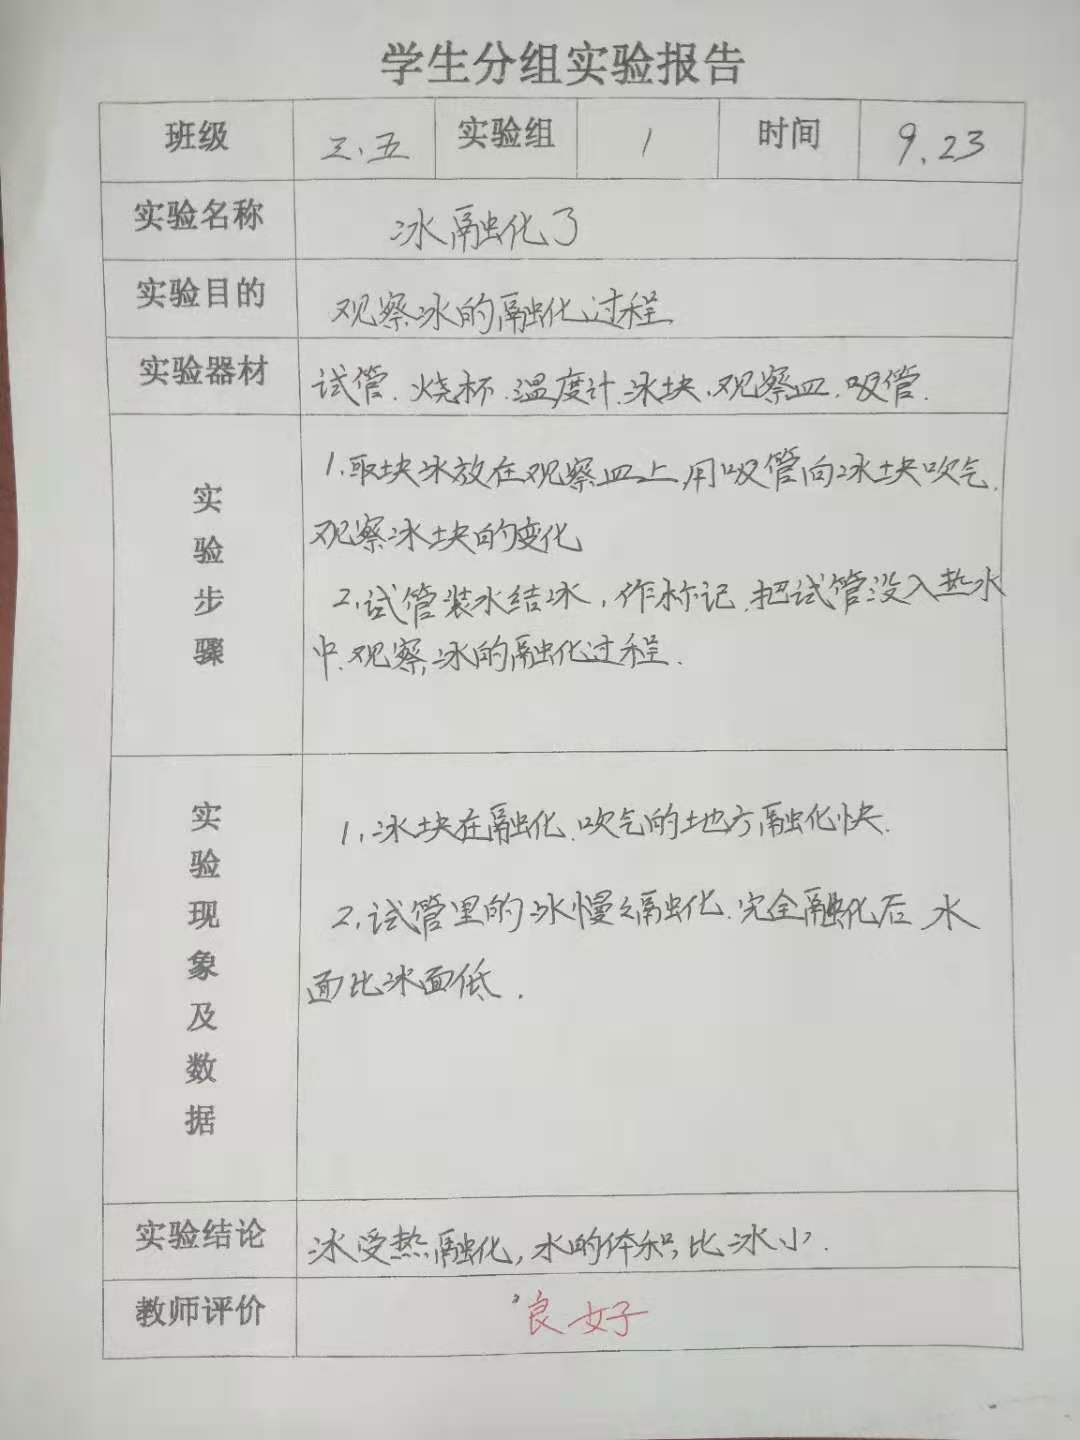 学生分组实验报告
班级 三.五 实验组 1 时间 9.23
实验名称 冰融化了
实验目的 观察冰的融化过程
实验器材 试管.烧杯.温度计.冰块.观察皿.吸管.
实验步骤
1.取块冰放在观察皿上,用吸管向冰块吹气.
观察冰块的变化
2.试管装水结冰,作标记.把试管没入热水
中.观察冰的融化过程.
实验现象及数据
1.冰块在融化.吹气的地方融化快.
2.试管里的冰慢々融化.完全融化后 水
面比冰面低.
实验结论 冰受热融化,水的体积比冰小.
教师评价 良好